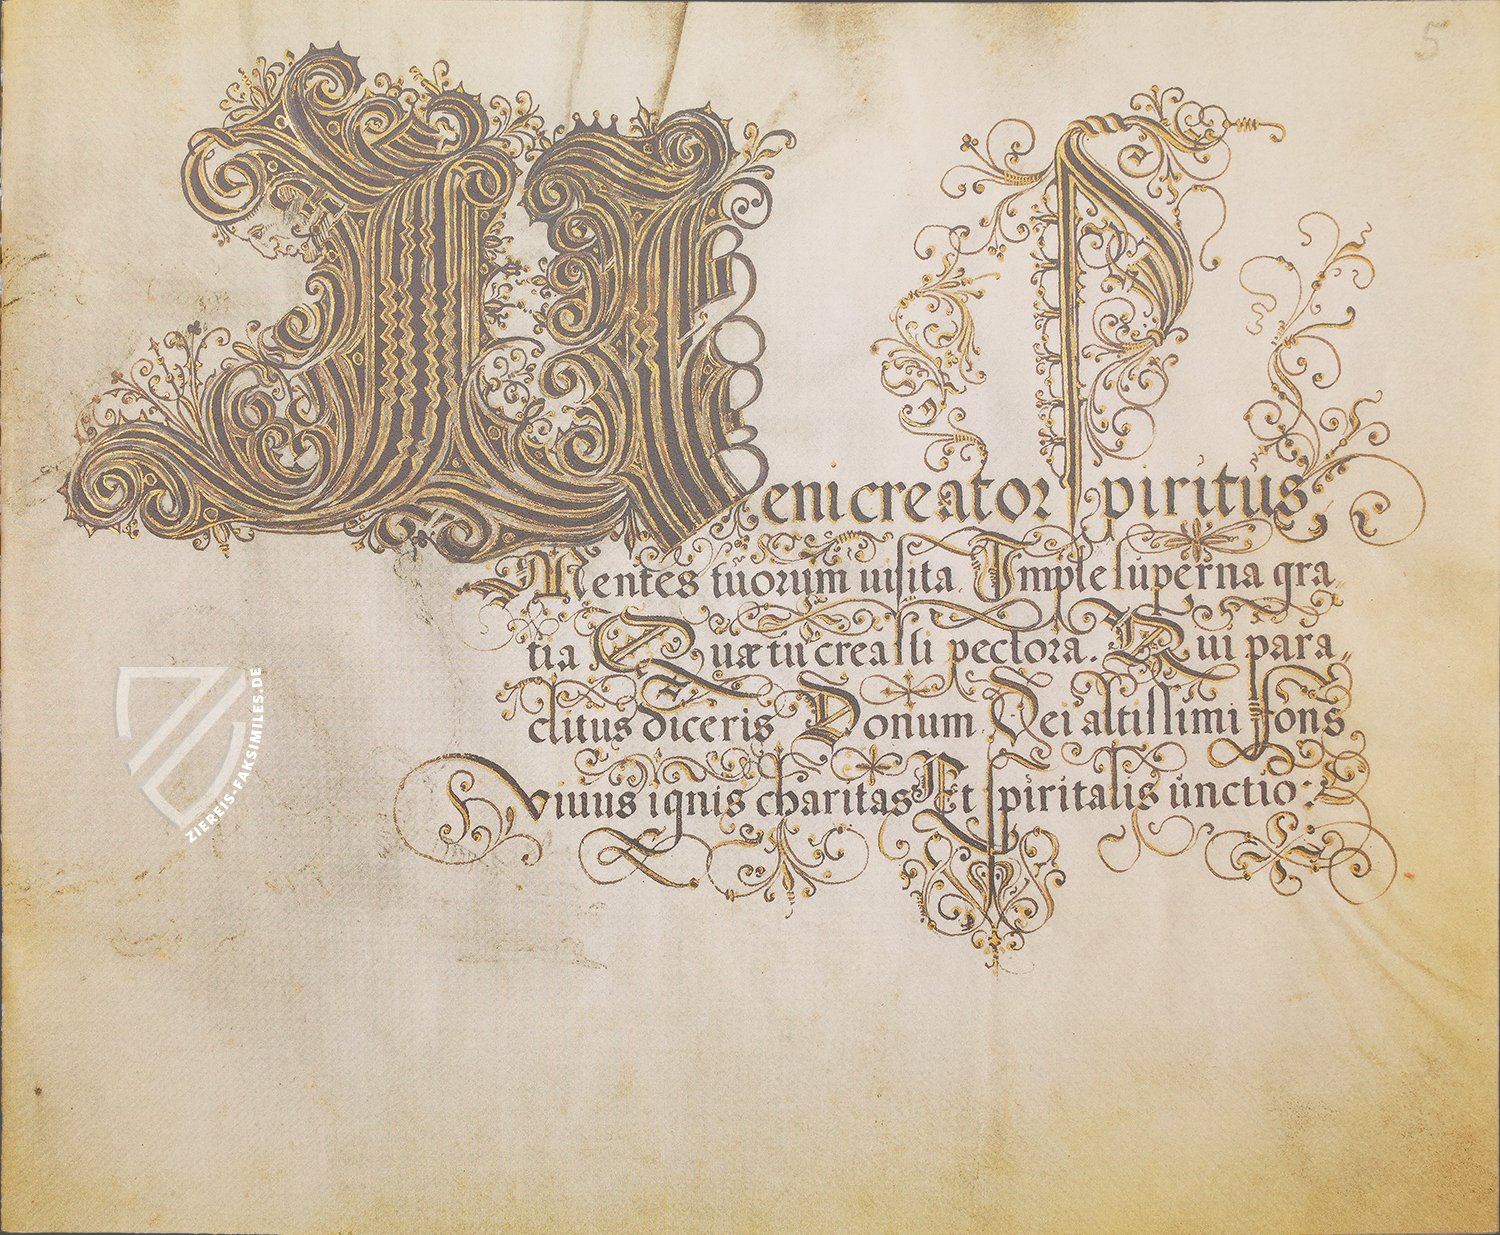 5
Veni creator spiritus
Mentes tuorum uisita. Imple superna gra„
tia. Quæ tu creasti pectora. Qui para„
clitus diceris Donum Dei altissimi fons
vivus ignis charitas Et spiritalis unctio:
ZIEREIS-FAKSIMILES.DE